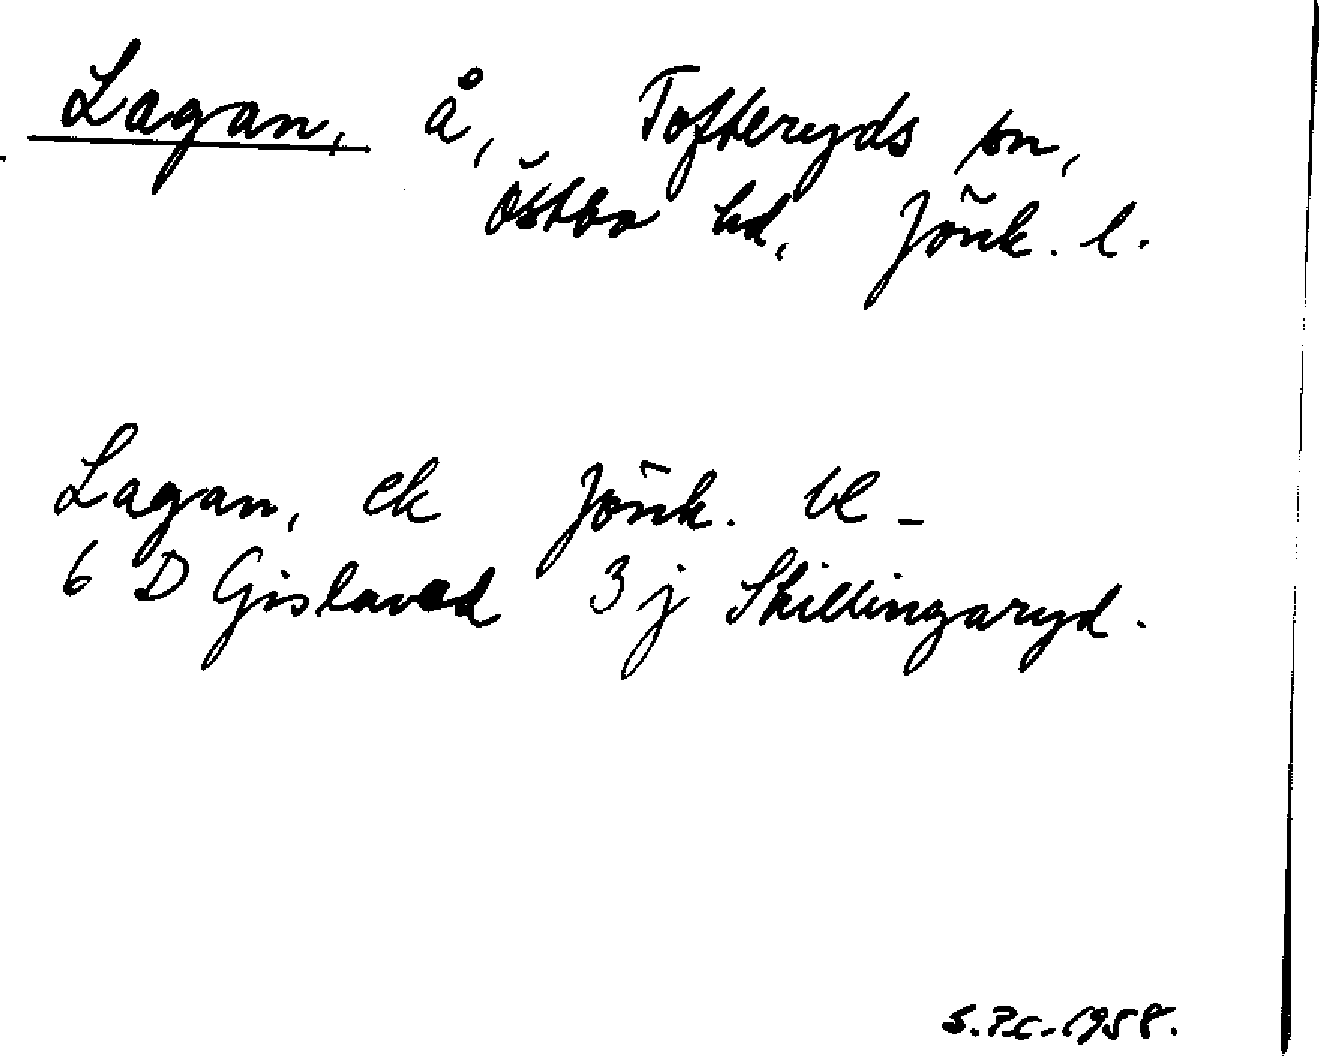 Lagan, å, Tofteryds sn,
Östbo hd, Jönk. l.
Lagan, ek Jönk. bl -
6 D Gislaved 3 j Skillingaryd.
S.P.C. 1958.